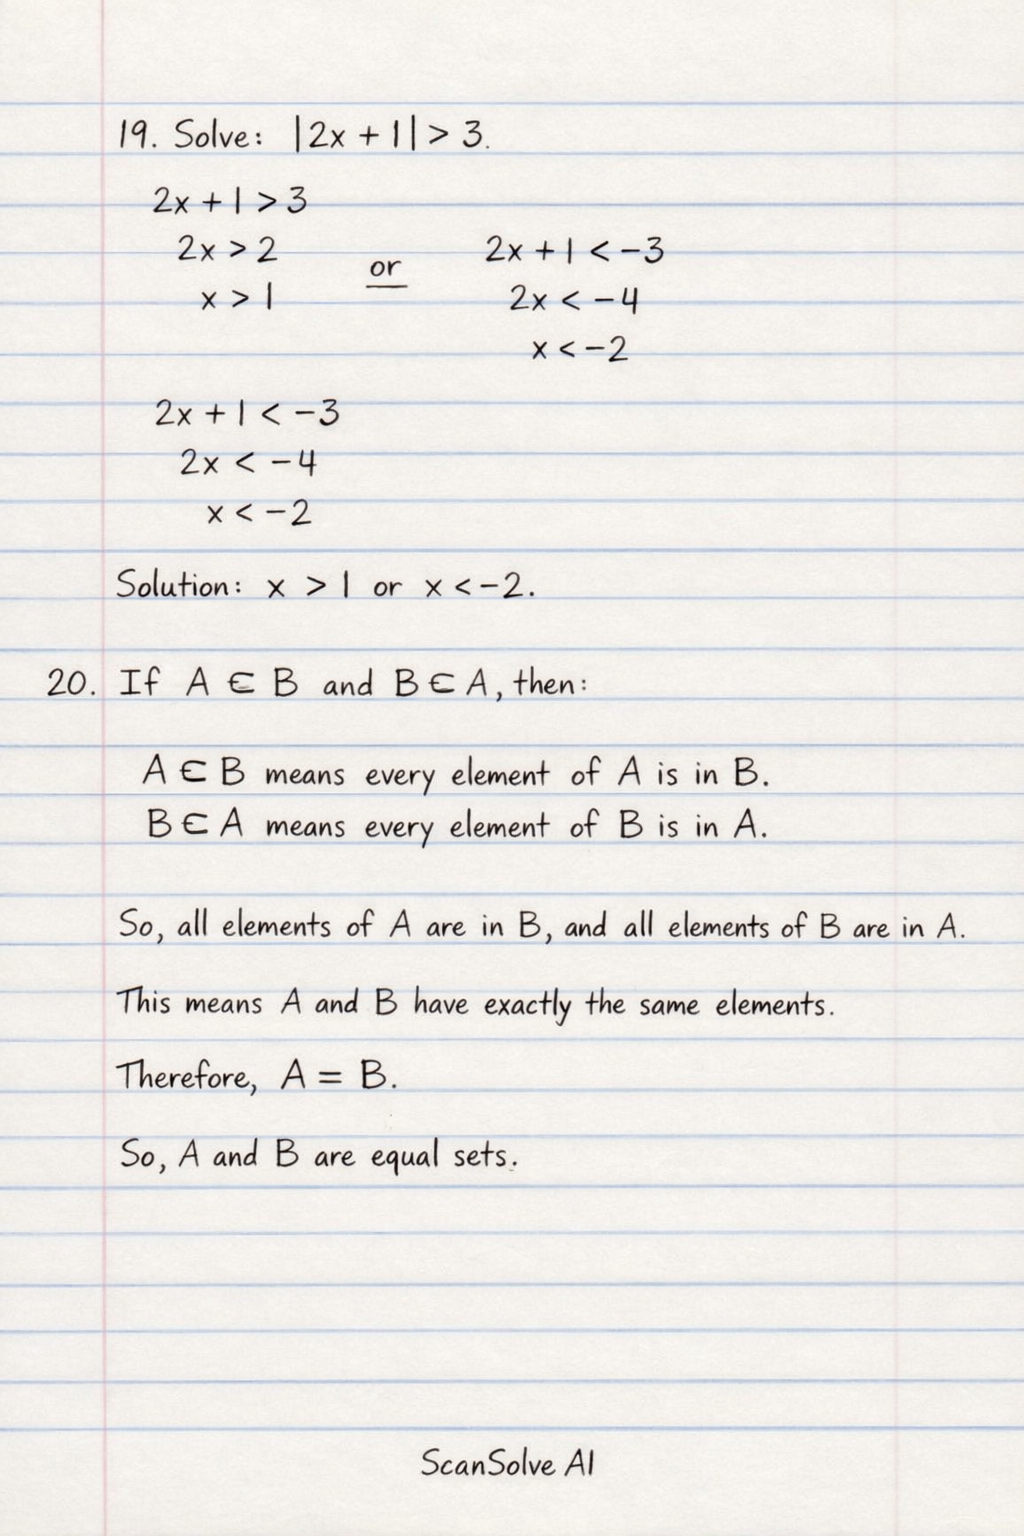 19. Solve: |2x + 1| > 3.
2x + 1 > 3
2x > 2
x > 1
or
2x + 1 < -3
2x < -4
x < -2
2x + 1 < -3
2x < -4
x < -2
Solution: x > 1 or x < -2.
20. If A ∈ B and B ∈ A, then:
A ∈ B means every element of A is in B.
B ∈ A means every element of B is in A.
So, all elements of A are in B, and all elements of B are in A.
This means A and B have exactly the same elements.
Therefore, A = B.
So, A and B are equal sets.
ScanSolve AI